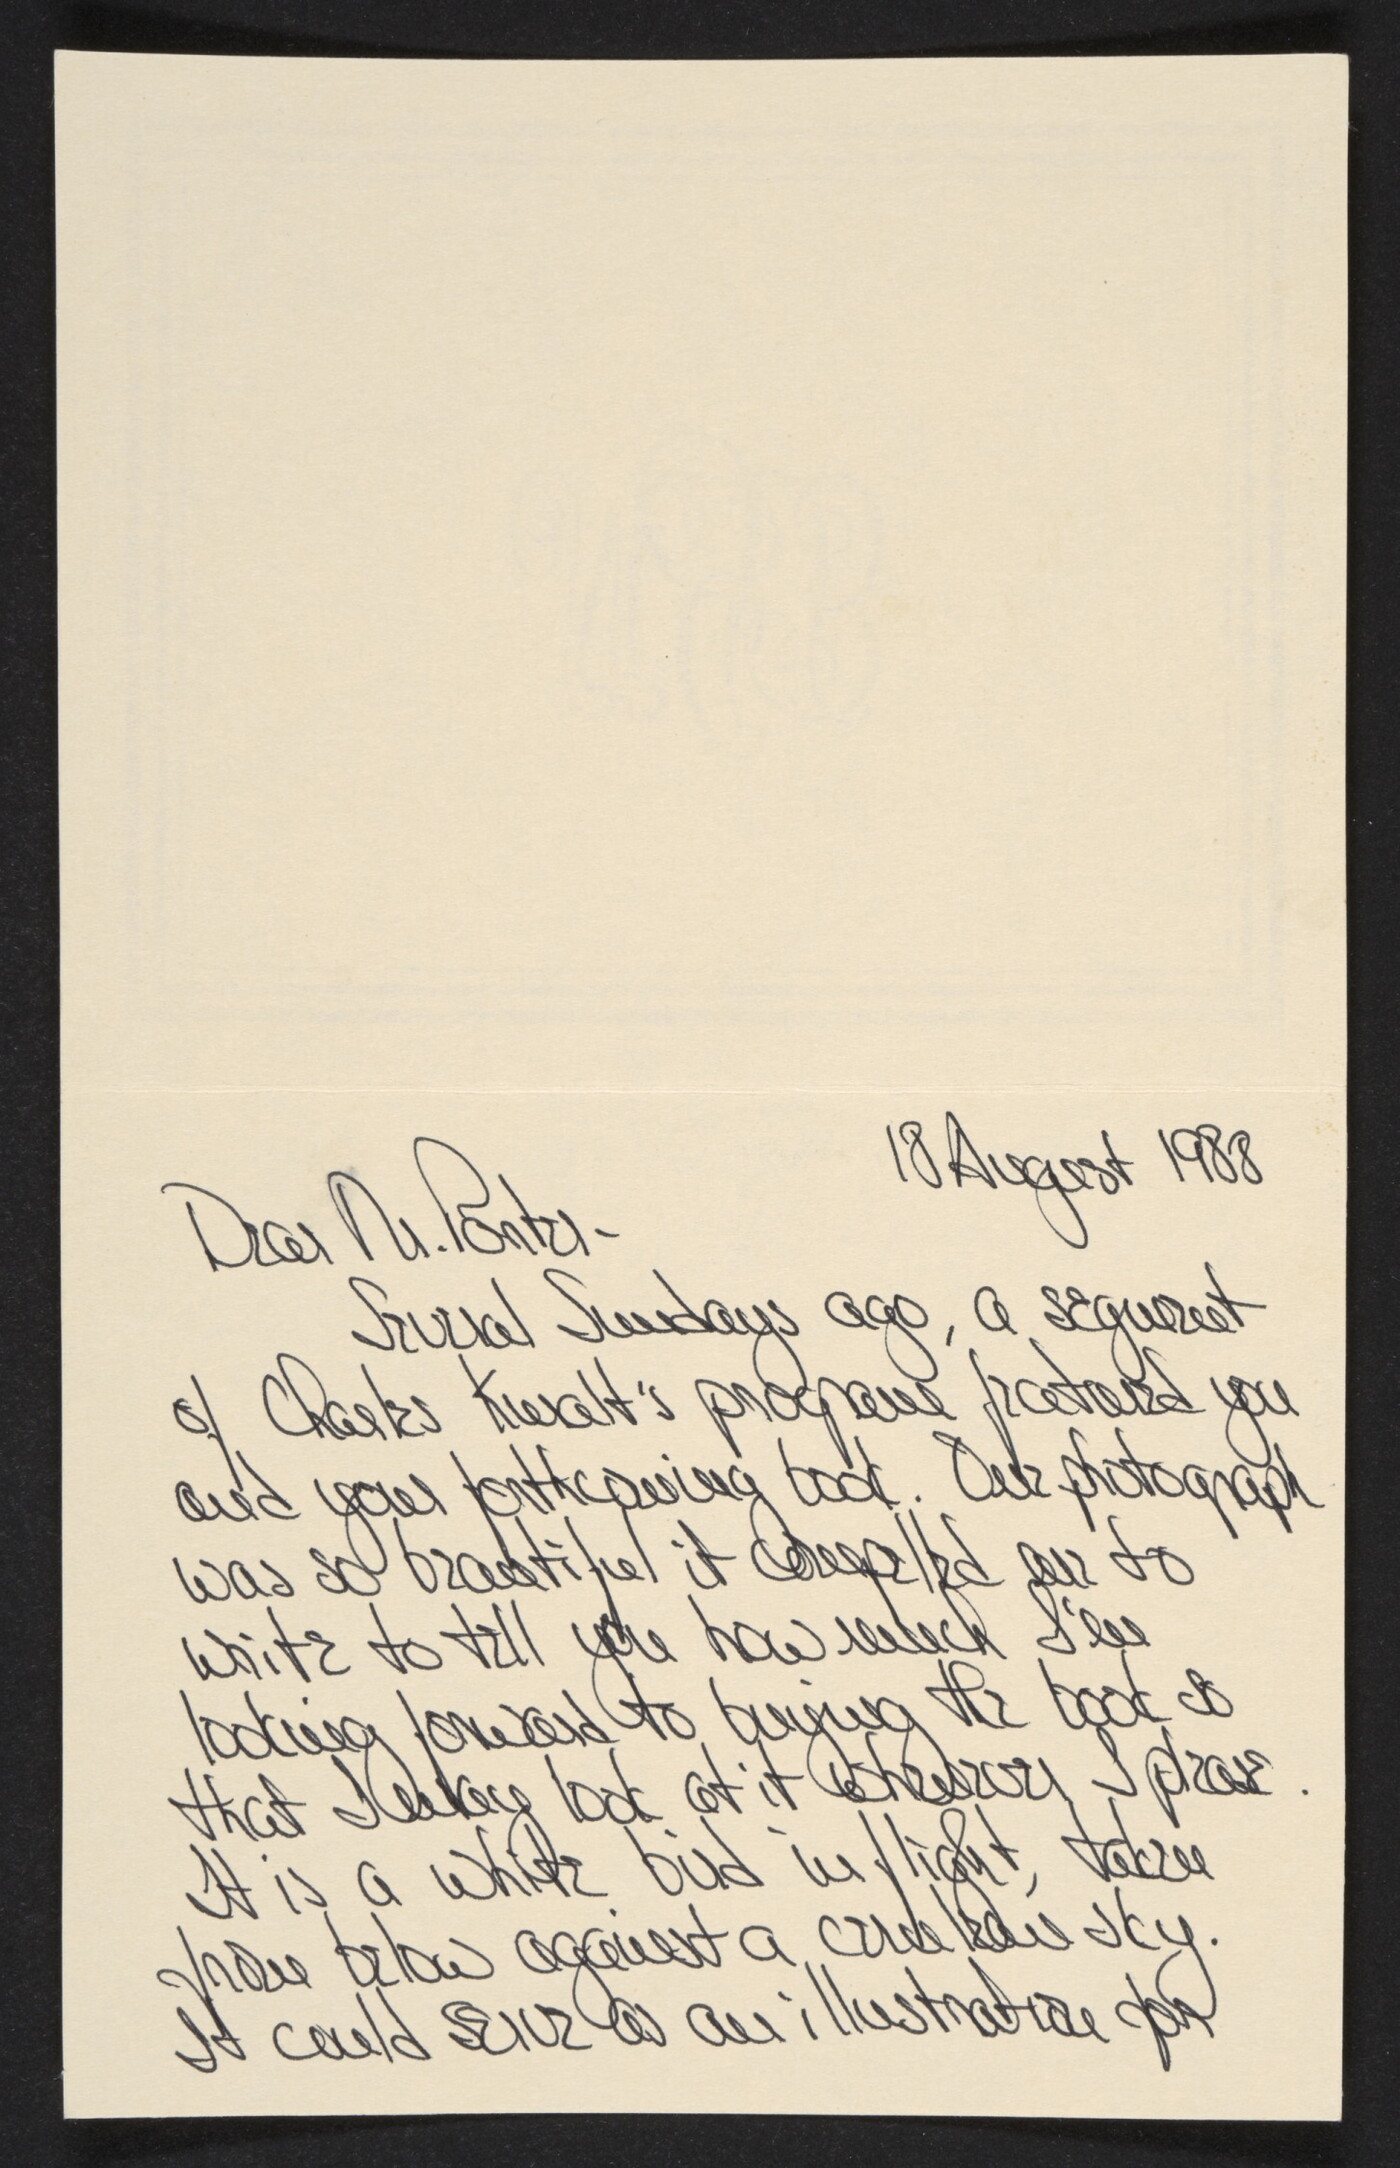 18 August 1988
Dear Mr. Porter-
Several Sundays ago, a segment
of Charles Kuralt's program featured you
and your forthcoming book. One photograph
was so beautiful it compelled me to
write to tell you how much I'm
looking forward to buying the book so
that I may look at it whenever I please.
It is a white bird in flight, taken
from below against a cerulean sky.
It could serve as an illustration for